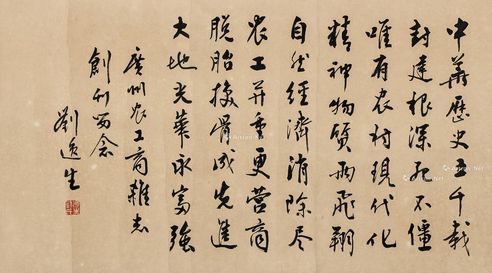 中华歷史五千载
封建根深死不僵
唯有农村现代化
精神物质两飞翔
自然经济消除尽
农工并重更营商
脱胎换骨成先進
大地光華永富强
廣州农工商雜志
創刊留念
劉逸生